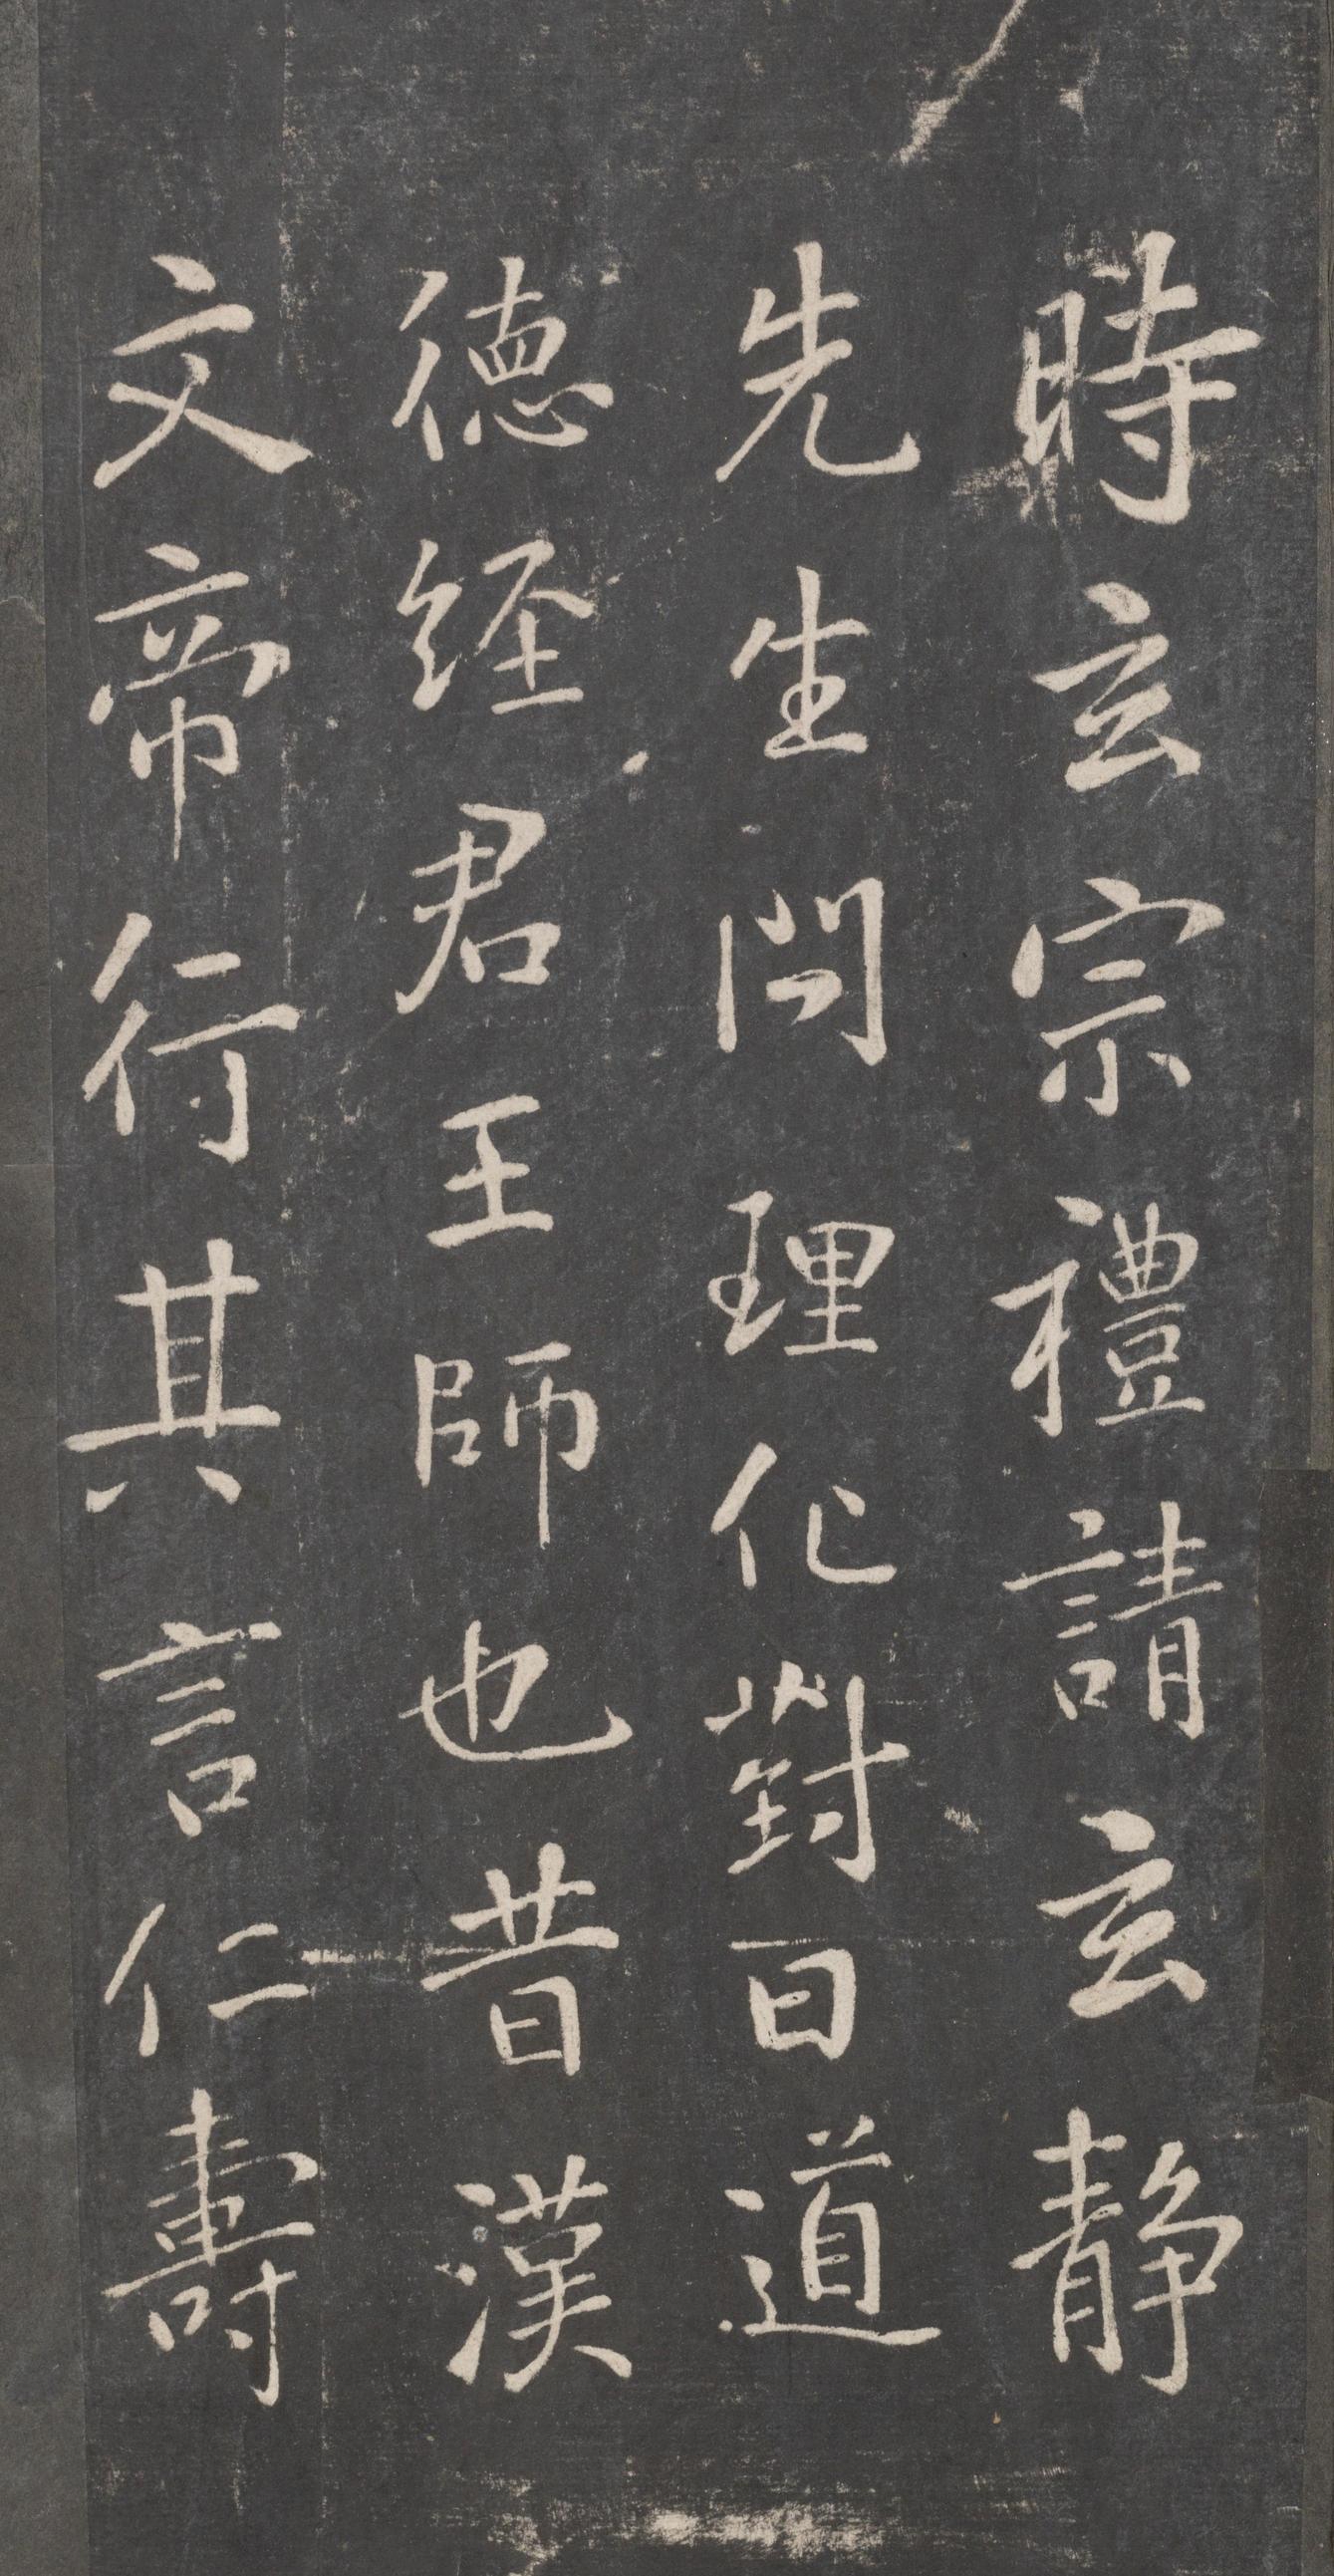 時玄宗禮請玄静
先生問理化對曰道
德経君王師也昔漢
文帝行其言仁壽